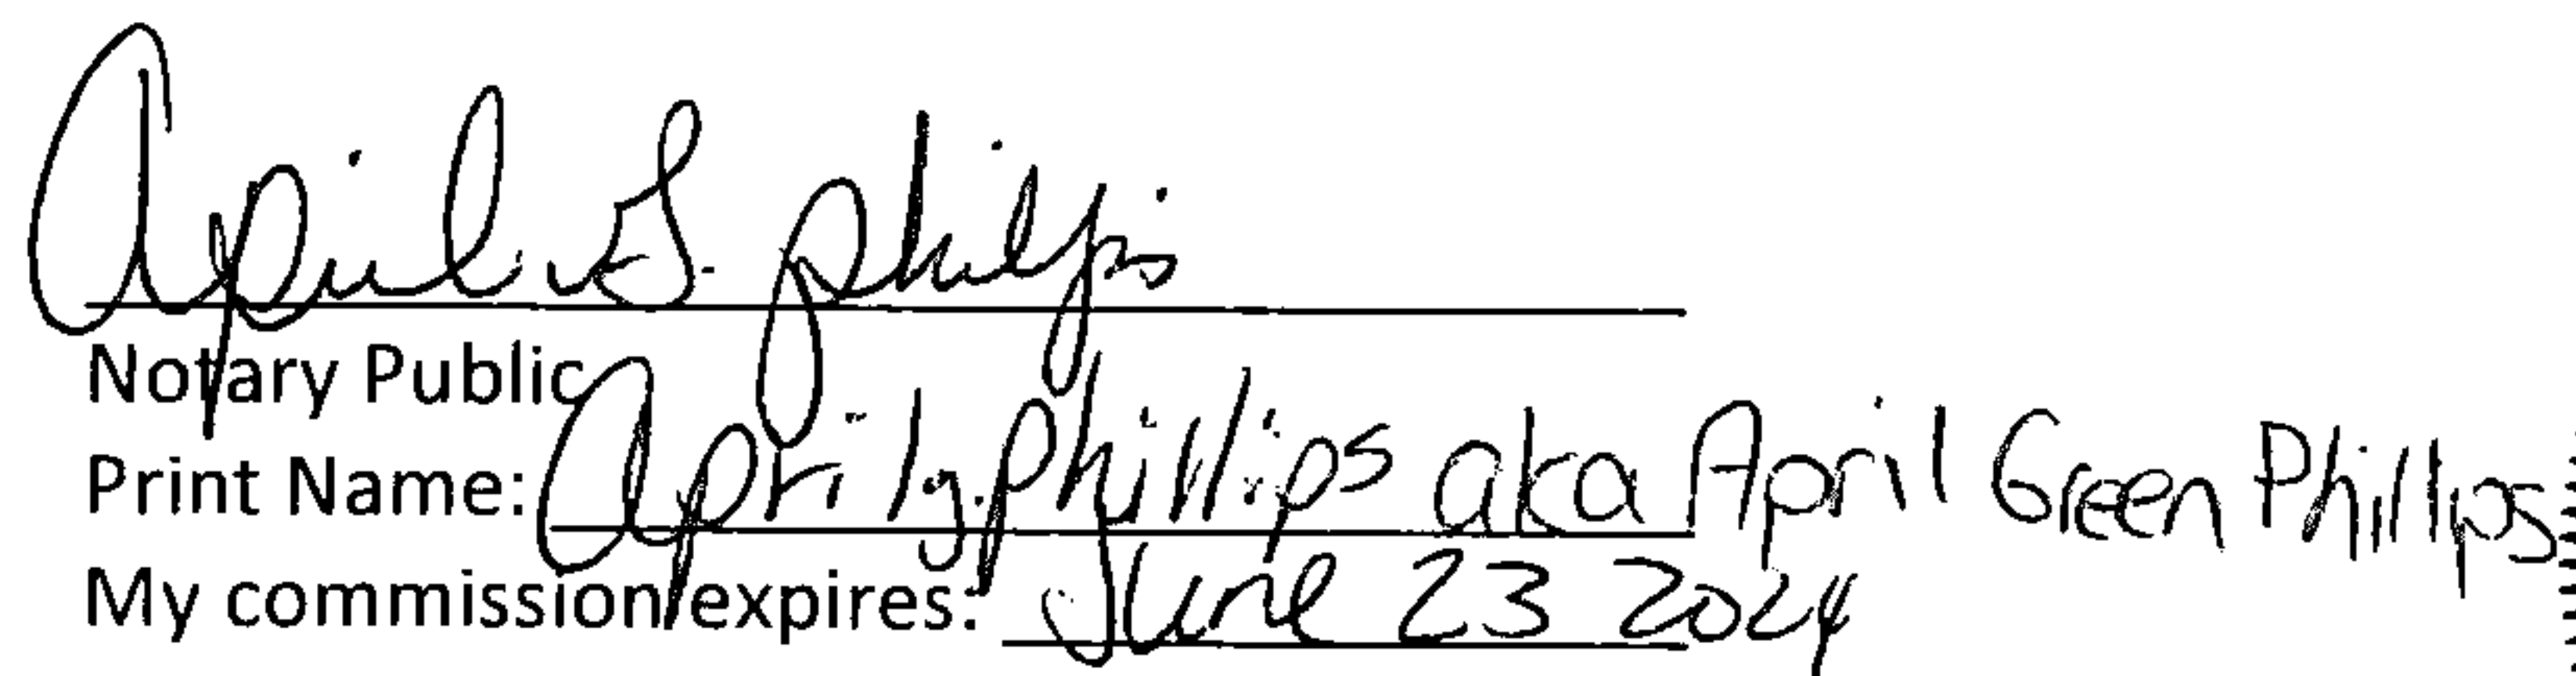 April G. Phillips
Notary Public
Print Name: April g. Phillips aka April Green Phillips
My commission expires: June 23 2024